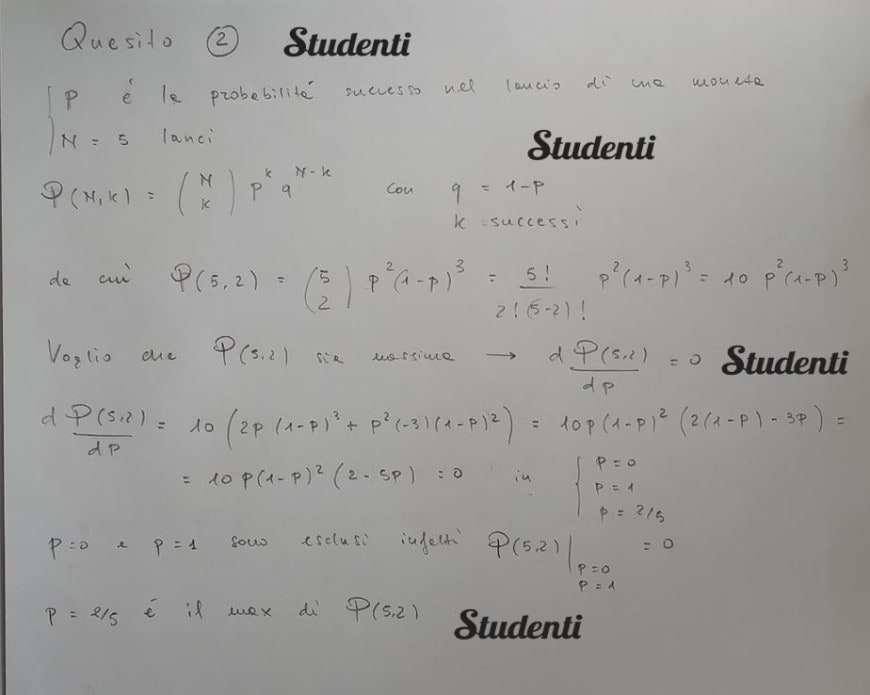 Quesito ② Studenti
{ p é la probabilitá successo nel lancio di una moneta
N = 5 lanci
Studenti
P(N,k) = (N k) p^k q^(N-k) con q = 1-p
k = successi
da cui P(5,2) = (5 2) p²(1-p)³ = 5!/(2!(5-2)!) p²(1-p)³ = 10 p²(1-p)³
Voglio che P(5,2) sia massima → dP(5,2)/dp = 0 Studenti
dP(5,2)/dp = 10 (2p (1-p)³ + p²(-3)(1-p)²) = 10p(1-p)² (2(1-p) - 3p) =
= 10 p(1-p)² (2 - 5p) = 0 in { p = 0
p = 1
p = 2/5
p=0 e p=1 sono esclusi infatti P(5,2)| = 0
p=0
p=1
p = 2/5 é il max di P(5,2)
Studenti